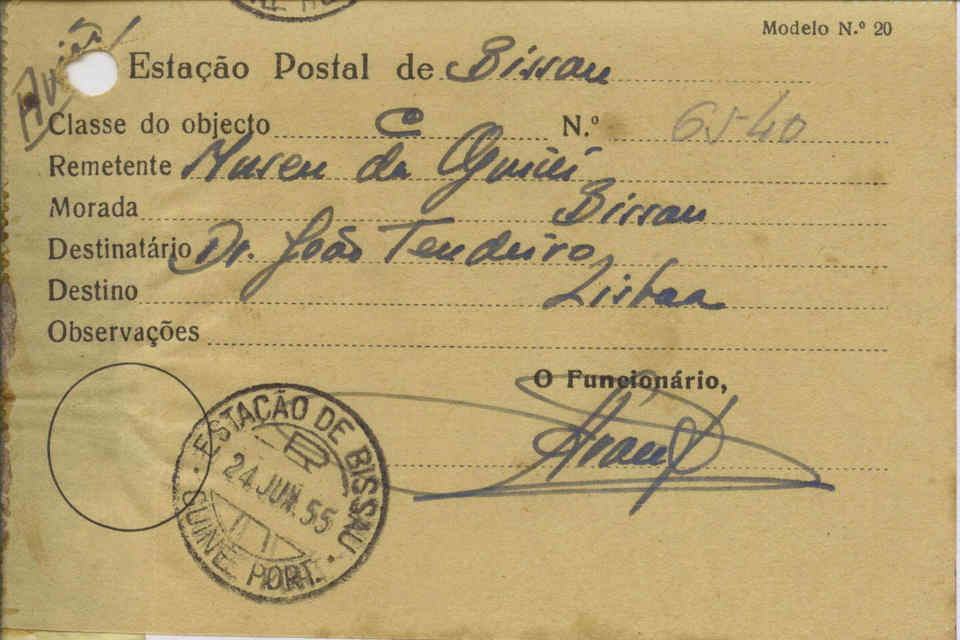 Modelo N.º 20
Avião
Estação Postal de Bissau
Classe do objecto C N.º 6540
Remetente Museu da Guiné
Morada Bissau
Destinatário Dr. João Tendeiro
Destino Lisboa
Observações
O Funcionário,
ESTAÇÃO DE BISSAU
R
24.JUN.55
GUINE PORT.